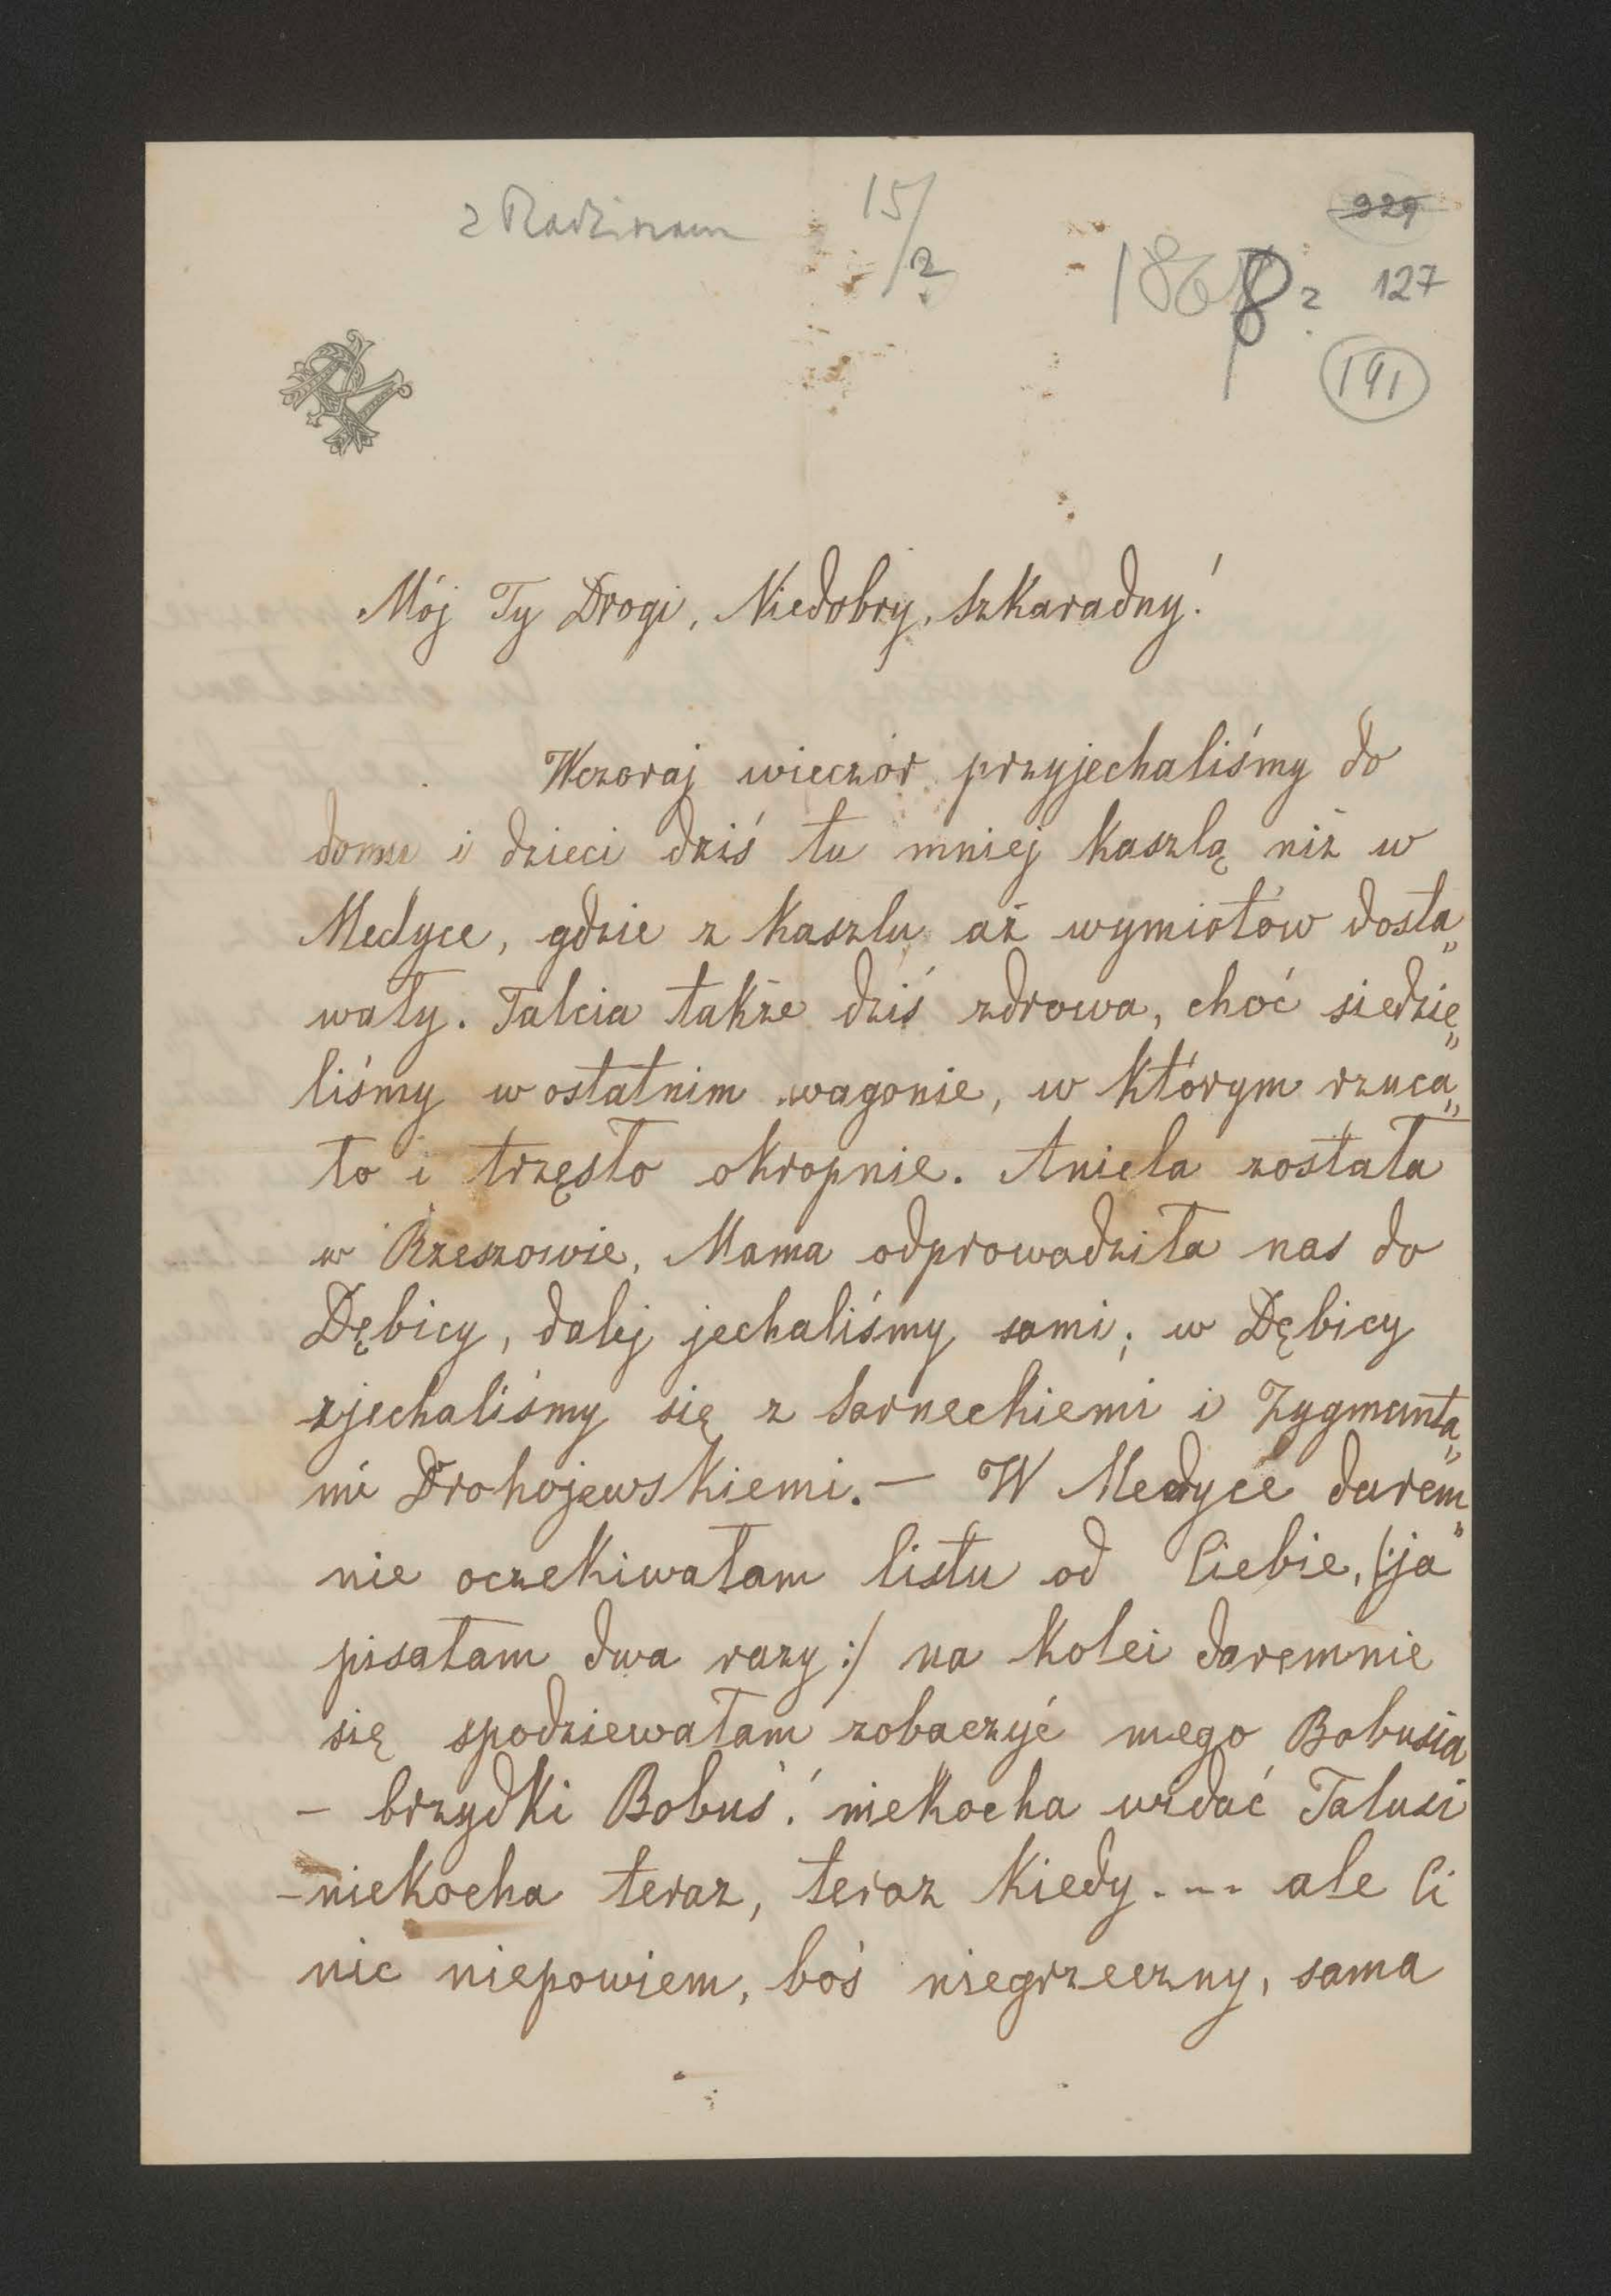 z Radzinam
15/2
329
1868?
127
191
Mój Ty Drogi, Niedobry, Szkaradny!
Wczoraj wieczór przyjechaliśmy do
domu i dzieci dziś tu mniej kaszlą niż w
Medyce, gdzie z kaszlu aż wymiotów dosta„
wały. Talcia także dziś zdrowa, choć siedzie„
liśmy w ostatnim wagonie, w którym rzuca„
ło i trzęsło okropnie. Aniela została
w Rzeszowie, Mama odprowadziła nas do
Dębicy, dalej jechaliśmy sami; w Dębicy
zjechaliśmy się z Sarneckiemi i Zygmunta„
mi Drohojewskiemi. — W Medyce darem„
nie oczekiwałam listu od Ciebie, /:ja
pisałam dwa razy:/ na kolei daremnie
się spodziewałam zobaczyć mego Bobusia
– brzydki Bobuś! niekocha widać Talusi
– niekocha teraz, teraz kiedy.... ale Ci
nic niepowiem, boś niegrzeczny, sama